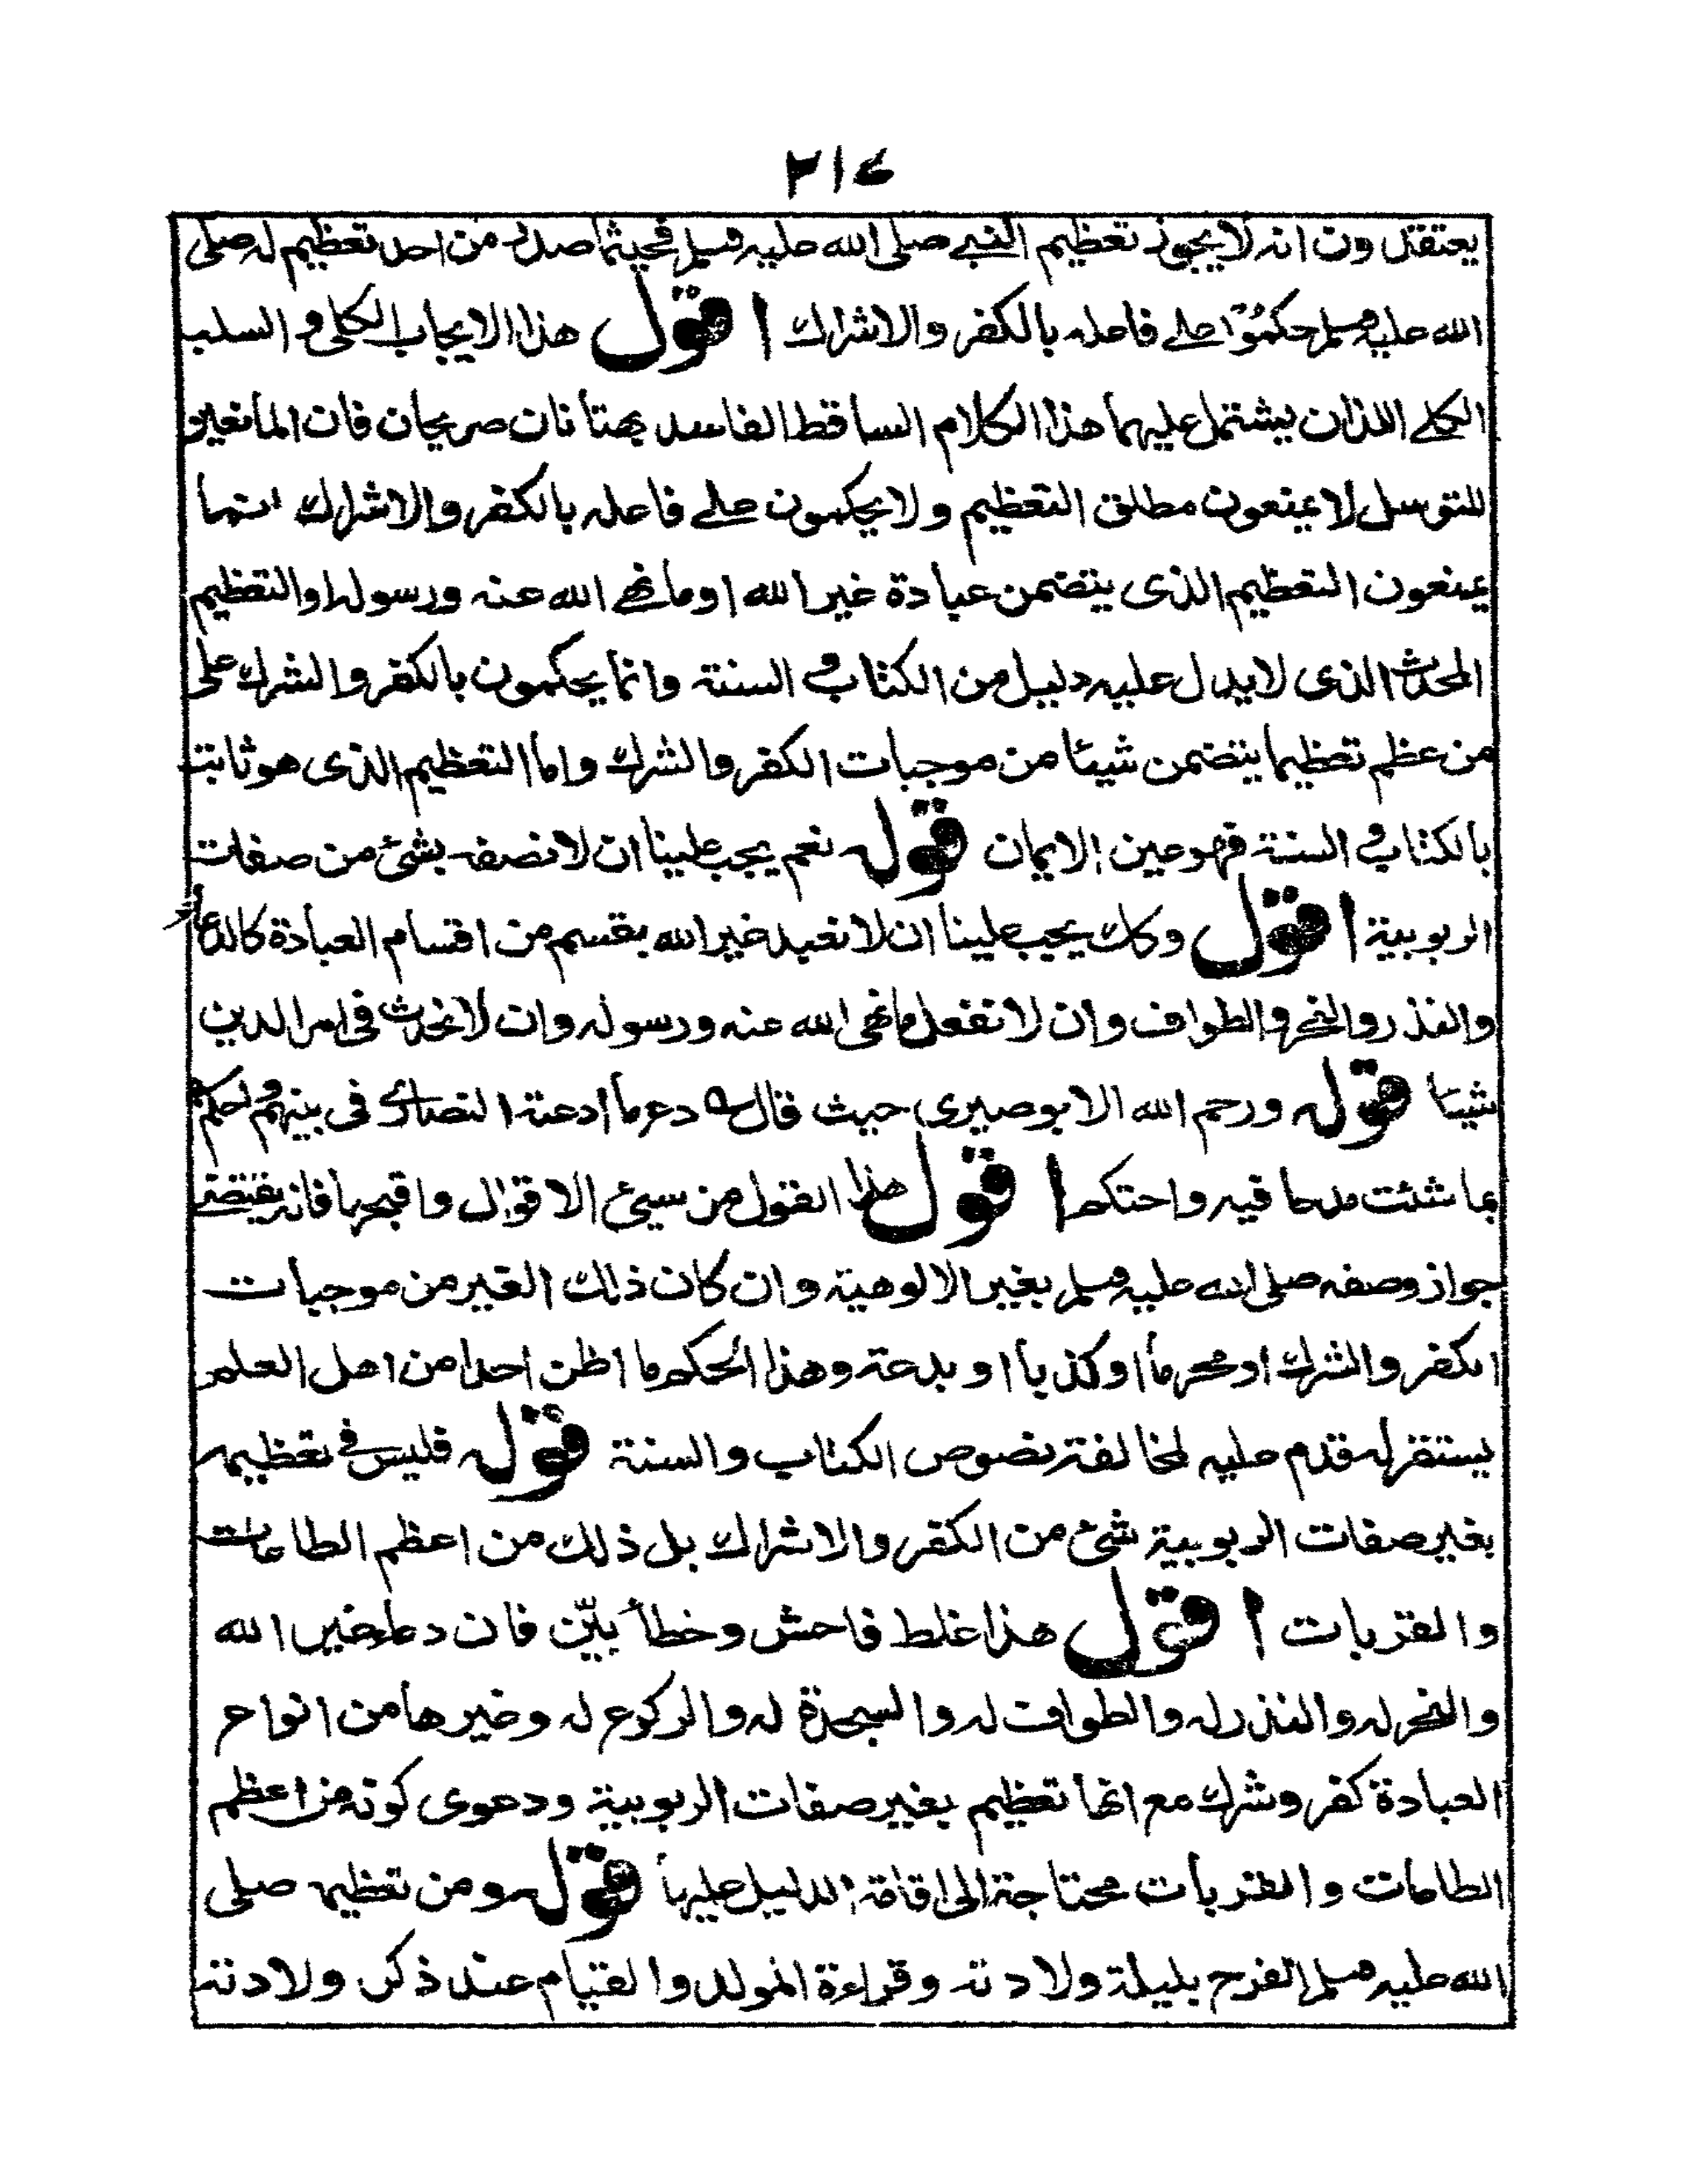 ٢١٤
يعتقدون انه لا يجوز تعظيم النبي صلى الله عليه وسلم فحيثما صدر من احد تعظيم له صلى
الله عليه وسلم حكموا على فاعله بالكفر والاشراك اقول هذا الايجاب الكلى والسلب
الكلى اللذان يشتمل عليهما هذا الكلام الساقط الفاسد بهتانان صريحان فان المانعين
للتوسل لا يمنعون مطلق التعظيم ولا يحكمون على فاعله بالكفر والاشراك انما
يمنعون التعظيم الذى يتضمن عبادة غير الله او ما نهى الله عنه ورسوله او التعظيم
المحدث الذى لا يدل عليه دليل من الكتاب والسنة وانما يحكمون بالكفر والشرك على
من عظم تعظيما يتضمن شيئا من موجبات الكفر والشرك واما التعظيم الذى هو ثابت
بالكتاب والسنة فهو عين الايمان قوله نعم يجب علينا ان لا نصفه بشئ من صفات
الربوبية اقول وكك يجب علينا ان لا نعبد غير الله بقسم من اقسام العبادة كالدعاء
والنذر والنحر والطواف وان لا نفعل ما نهى الله عنه ورسوله وان لا نحدث فى امر الدين
شيئا قوله ورحم الله الابوصيرى حيث قال ؎ دع ما ادعته النصارى فى نبيهم واحكم
بما شئت مدحا فيه واحتكم اقول هذا القول من سيئ الاقوال واقبحها فانه يقتضى
جواز وصفه صلى الله عليه وسلم بغير الالوهية وان كان ذلك الغير من موجبات
الكفر والشرك او محرما او كذبا او بدعة وهذا الحكم ما اظن احدا من اهل العلم
يستقر له قدم عليه لمخالفته نصوص الكتاب والسنة قوله فليس فى تعظيمه
بغير صفات الربوبية شئ من الكفر والاشراك بل ذلك من اعظم الطاعات
والقربات اقول هذا غلط فاحش وخطأ بيّن فان دعاء غير الله
والنحر له والنذر له والطواف له والسجدة له والركوع له وغيرها من انواع
العبادة كفر وشرك مع انها تعظيم بغير صفات الربوبية ودعوى كونه من اعظم
الطاعات والقربات محتاجة الى اقامة الدليل عليها قوله ومن تعظيمه صلى
الله عليه وسلم الفرح بليلة ولادته وقراءة المولد والقيام عند ذكر ولادته